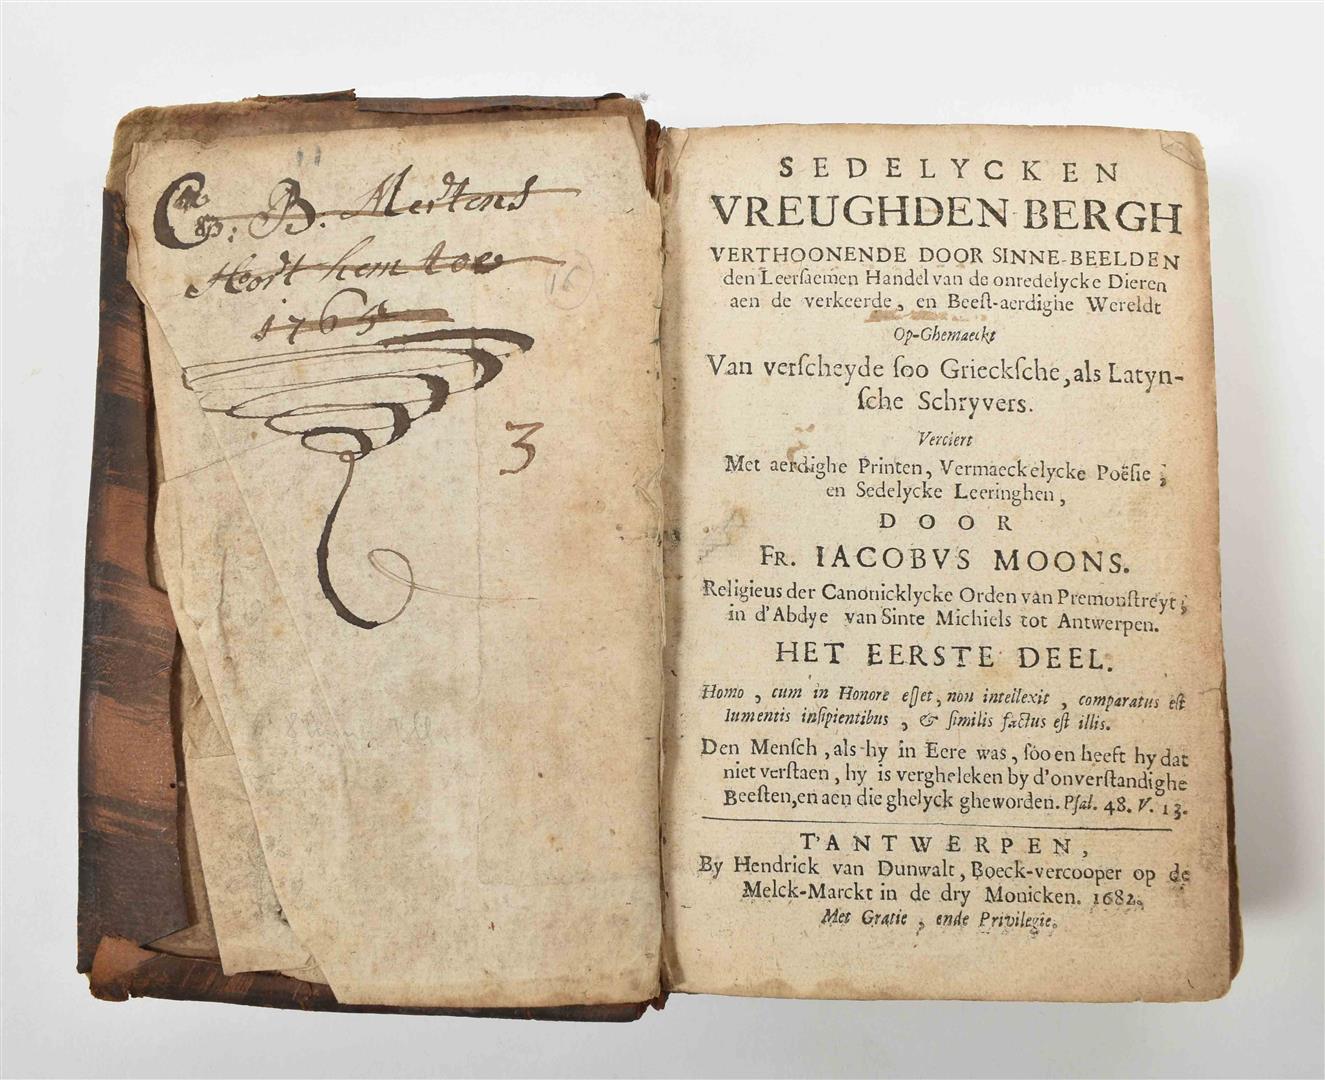 B. Mertens
Hoort hem toe
3
SEDELYCKEN
VREUGHDEN-BERGH
VERTHOONENDE DOOR SINNE-BEELDEN
den Leersaemen Handel van de onredelycke Dieren
aen de verkeerde, en Beest-aerdighe Wereldt
Op-Ghemaeckt
Van verscheyde soo Griecksche, als Latyn-
sche Schryvers.
Verciert
Met aerdighe Printen, Vermaeckelycke Poësie,
en Sedelycke Leeringhen,
DOOR
FR. IACOBVS MOONS.
Religieus der Canonicklycke Orden van Premonstreyt,
in d'Abdye van Sinte Michiels tot Antwerpen.
HET EERSTE DEEL.
Homo, cum in Honore esset, non intellexit, comparatus est
Iumentis insipientibus, & similis factus est illis.
Den Mensch, als hy in Eere was, soo en heeft hy dat
niet verstaen, hy is vergheleken by d'onverstandighe
Beesten, en aen die ghelyck gheworden. Psal. 48. V. 13.
T'ANTWERPEN,
By Hendrick van Dunwalt, Boeck-vercooper op de
Melck-Marckt in de dry Monicken. 1682.
Met Gratie, ende Privilegie.